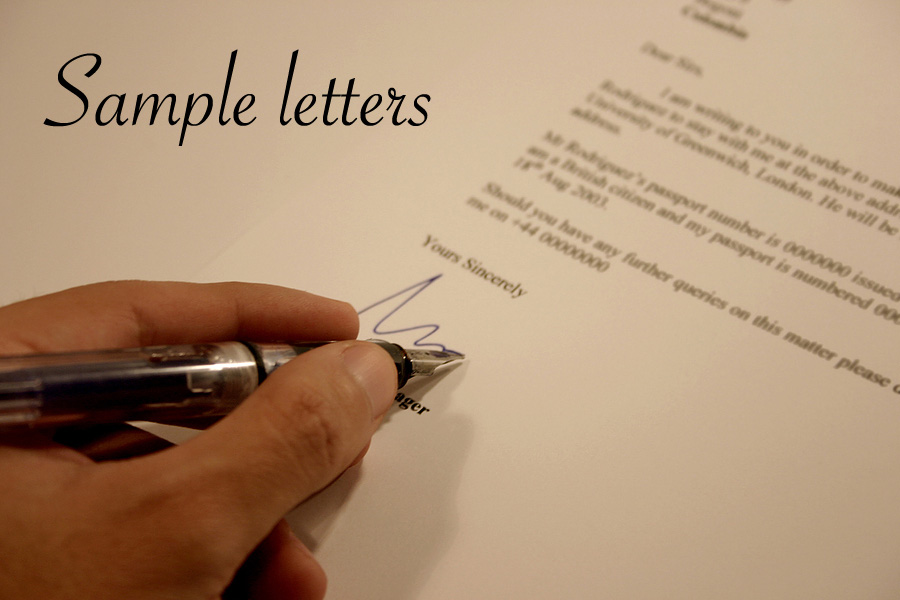 Sample letters
Columbia
Dear Sirs,
I am writing to you in order to
Rodriguez to stay with me at the above
University of Greenwich, London. He will be
address.
Mr Rodriguez's passport number is 0000000 issued
am a British citizen and my passport is numbered
18th Aug 2003.
Should you have any further queries on this matter please
me on +44 0000000
Yours Sincerely